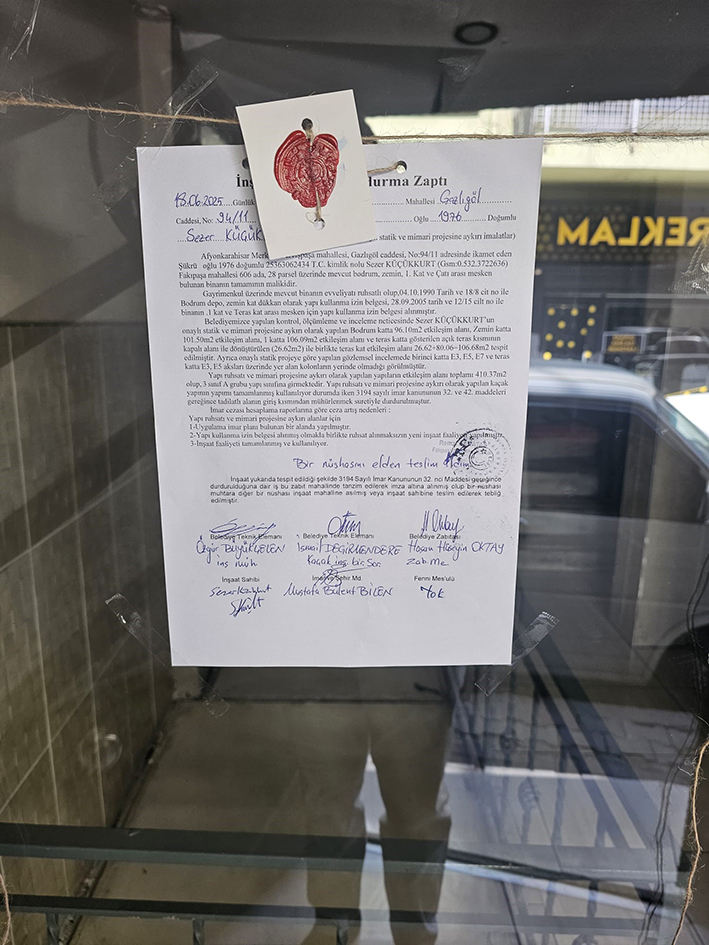 İnş durma Zaptı
18.06.2025 Günlük Mahallesi Gazlıgöl
Caddesi, No: 94/11 Oğlu 1976 Doğumlu
Sezer KÜÇÜK statik ve mimari projesine aykırı imalatlar)
Afyonkarahisar Merk paşa mahallesi, Gazlıgöl caddesi, No:94/11 adresinde ikamet eden
Şükrü oğlu 1976 doğumlu 25363062434 T.C. kimlik nolu Sezer KÜÇÜKKURT (Gsm:0.532.3722636)
Fakıpaşa mahallesi 606 ada, 28 parsel üzerinde mevcut bodrum, zemin, 1. Kat ve Çatı arası mesken
bulunan binanın tamamının malikidir.
Gayrimenkul üzerinde mevcut binanın evveliyatı ruhsatlı olup,04.10.1990 Tarih ve 18/8 cit no ile
Bodrum depo, zemin kat dükkan olarak yapı kullanma izin belgesi, 28.09.2005 tarih ve 12/15 cilt no ile
binanın .1 kat ve Teras kat arası mesken için yapı kullanma izin belgesi alınmıştır.
Belediyemizce yapılan kontrol, ölçümleme ve inceleme neticesinde Sezer KÜÇÜKKURT'un
onaylı statik ve mimari projesine aykırı olarak yapılan Bodrum katta 96.10m2 etkileşim alanı, Zemin katta
101.50m2 etkileşim alanı, 1 katta 106.09m2 etkileşim alanı ve teras katta gösterilen açık teras kısmının
kapalı alanı ile dönüştürülen (26.62m2) ile birlikte teras kat etkileşim alanı 26.62+80.06=106.68m2 tespit
edilmiştir. Ayrıca onaylı statik projeye göre yapılan gözlemsel incelemede birinci katta E3, E5, E7 ve teras
katta E3, E5 aksları üzerinde yer alan kolonların yerinde olmadığı görülmüştür.
Yapı ruhsatı ve mimari projesine aykırı olarak yapılan yapıların etkileşim alanı toplamı 410.37m2
olup, 3 sınıf A grubu yapı sınıfına girmektedir. Yapı ruhsatı ve mimari projesine aykırı olarak yapılan kaçak
yapının yapımı tamamlanmış kullanılıyor durumda iken 3194 sayılı imar kanununun 32. ve 42. maddeleri
gereğince tadilatlı alanın giriş kısmından mühürlenmek suretiyle durdurulmuştur.
İmar cezası hesaplama raporlarına göre ceza artış nedenleri :
Yapı ruhsatı ve mimari projesine aykırı alanlar için
1-Uygulama imar planı bulunan bir alanda yapılmıştır.
2-Yapı kullanma izin belgesi alınmış olmakla birlikte ruhsat alınmaksızın yeni inşaat faaliyeti yapılmıştır.
3-İnşaat faaliyeti tamamlanmış ve kullanılıyor.
Bir nüshasını elden teslim aldım
İnşaat yukarıda tespit edildiği şekilde 3194 Sayılı İmar Kanununun 32. nci Maddesi gereğince
durdurulduğuna dair iş bu zabıt mahallinde tanzim edilerek imza altına alınmış olup bir nüshası
muhtara diğer bir nüshası inşaat mahalline asılmış veya inşaat sahibine teslim edilerek tebliğ
edilmiştir.
Belediye Teknik Elemanı Belediye Teknik Elemanı Belediye Zabıtası
Özgür BÜYÜKÇELEN İsmail DEĞİRMENDERE Hasan Hüseyin OKTAY
inş müh Kaçak inş. bir. Sor. Zab. Me.
İnşaat Sahibi İmar ve Şehir Md. Fenni Mes'ulü
Sezer Küçükkurt Mustafa Bülent BİLEN Yok
REKLAM